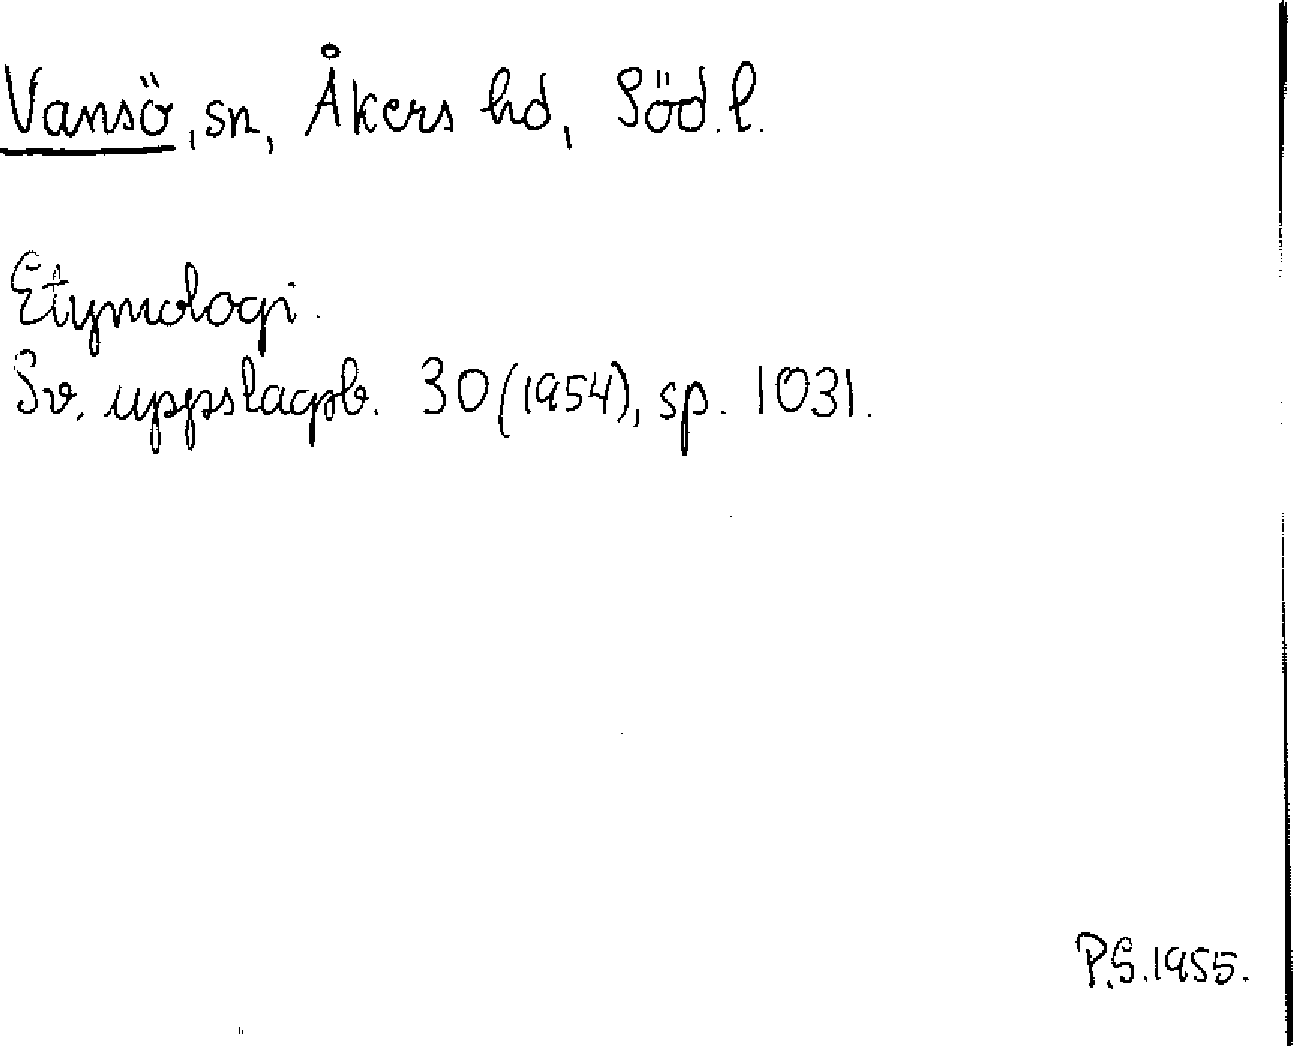 Vansö, sn, Åkers hd, Söd. l.
Etymologi.
Sv. uppslagsb. 30 (1954), sp. 1031.
P.S. 1955.